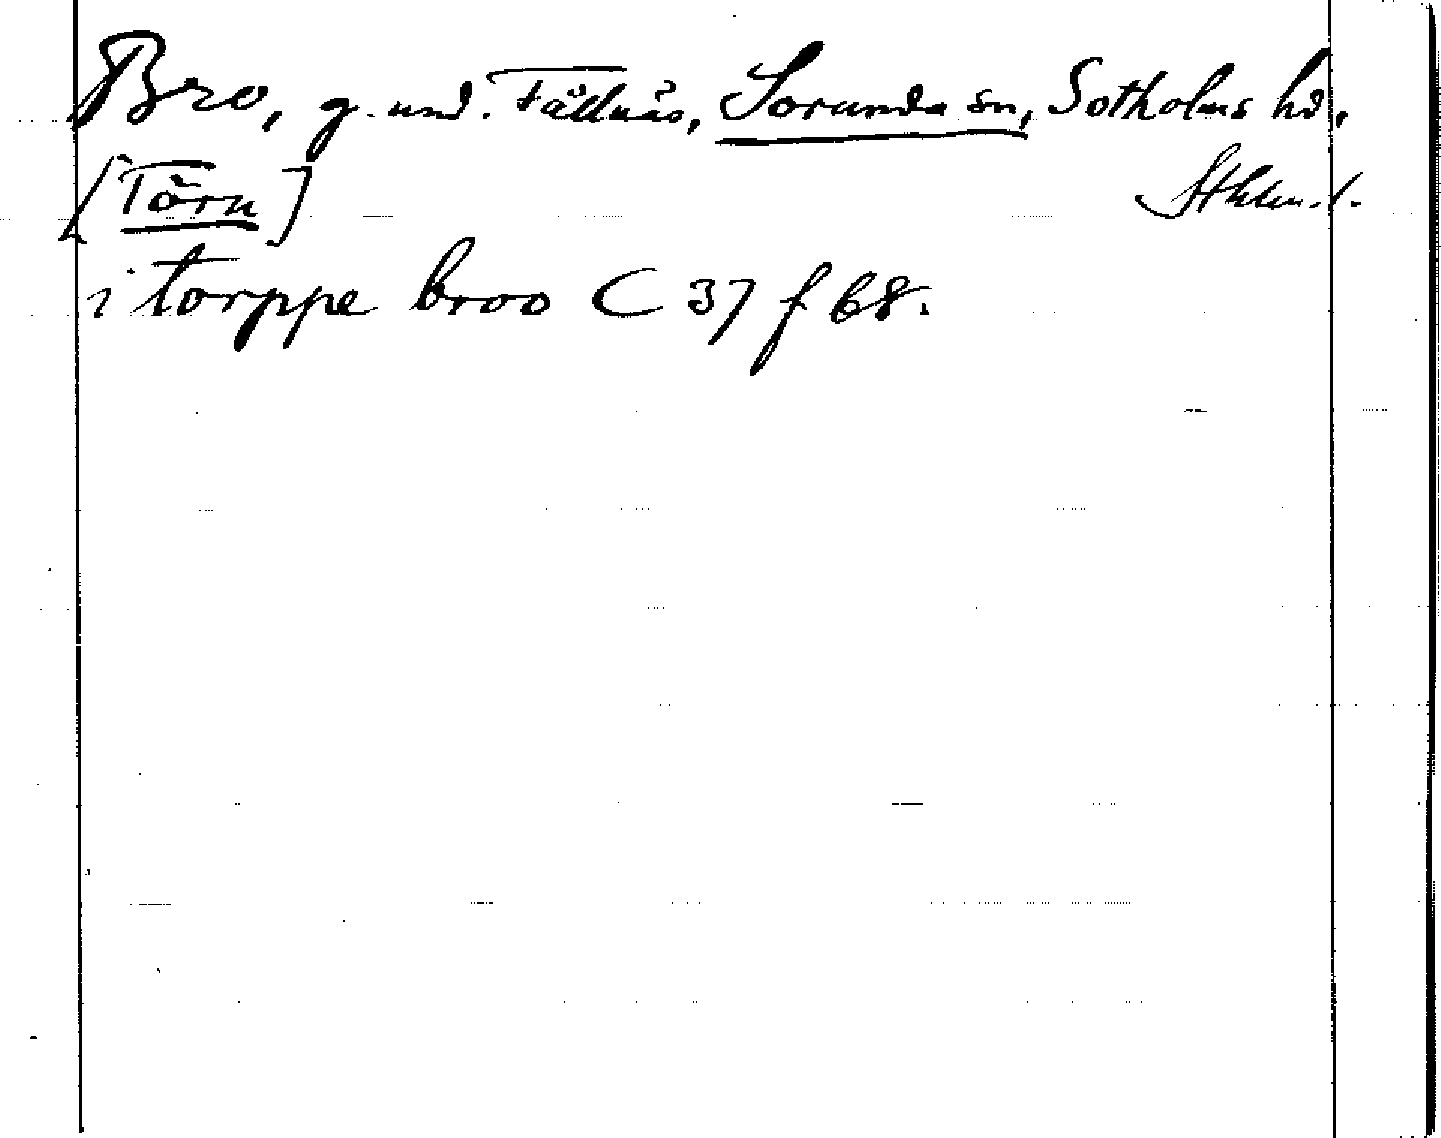 Bro, g. und. Fållnäs, Sorunda sn, Sotholms hd,
[Törn] Sthlm. l.
i torppe broo C 37 f 68.